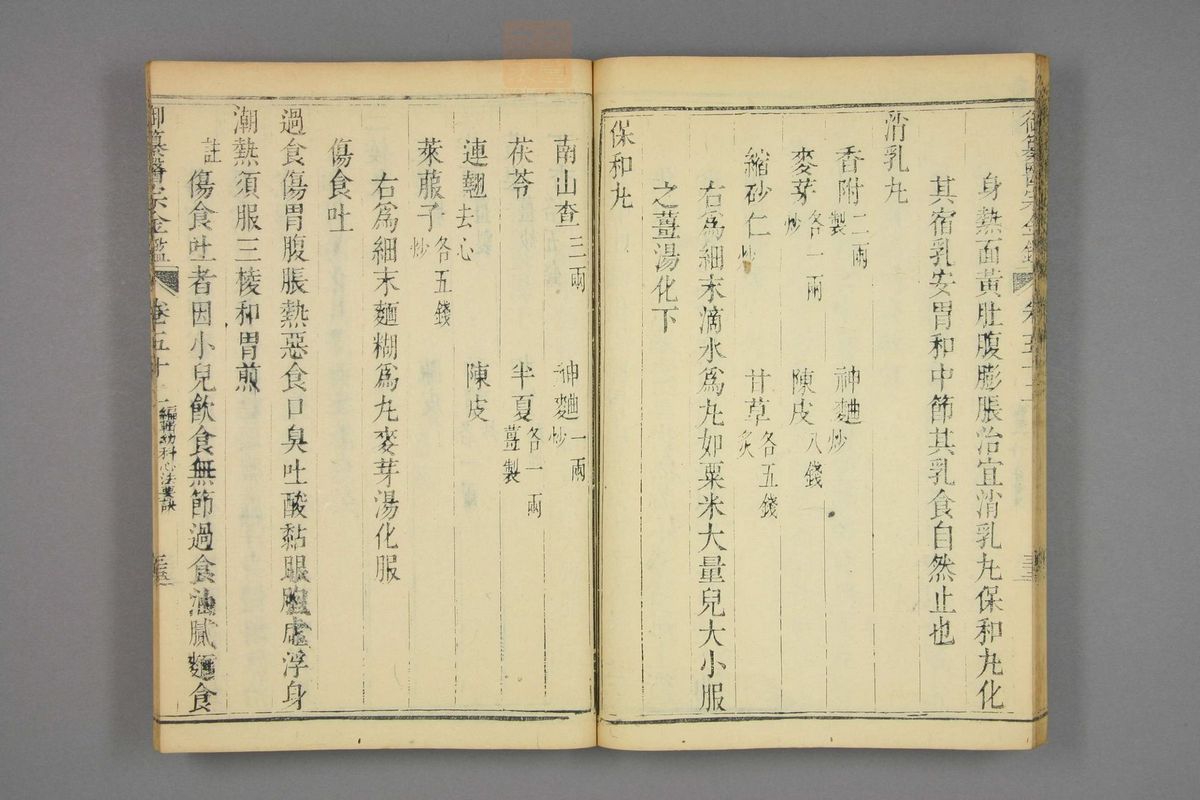 身熱面黃肚腹膨脹治宜消乳丸保和丸化
其宿乳安胃和中節其乳食自然止也
消乳丸
香附二兩製 神麯炒
麥芽各一兩炒 陳皮八錢
縮砂仁炒 甘草各五錢炙
右爲細末滴水爲丸如粟米大量兒大小服
之薑湯化下
保和丸
南山查三兩 神麯一兩炒
茯苓 半夏各一兩薑製
連翹去心 陳皮
萊菔子各五錢炒
右爲細末麵糊爲丸麥芽湯化服
傷食吐
過食傷胃腹脹熱惡食口臭吐酸黏眼胞虛浮身
潮熱須服三棱和胃煎
註傷食吐者因小兒飮食無節過食油膩麵食
御纂醫宗金鑑 卷五十二 編輯幼科心法要訣